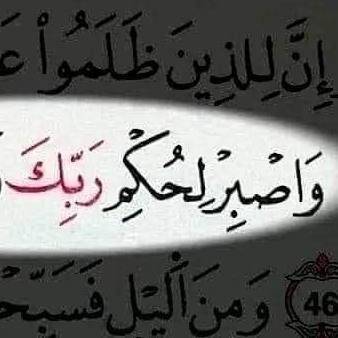 إِنَّ لِلَّذِينَ ظَلَمُوا۟
وَاصْبِرْ لِحُكْمِ رَبِّكَ
46 وَمِنَ ٱلَّيْلِ فَسَبِّحْ